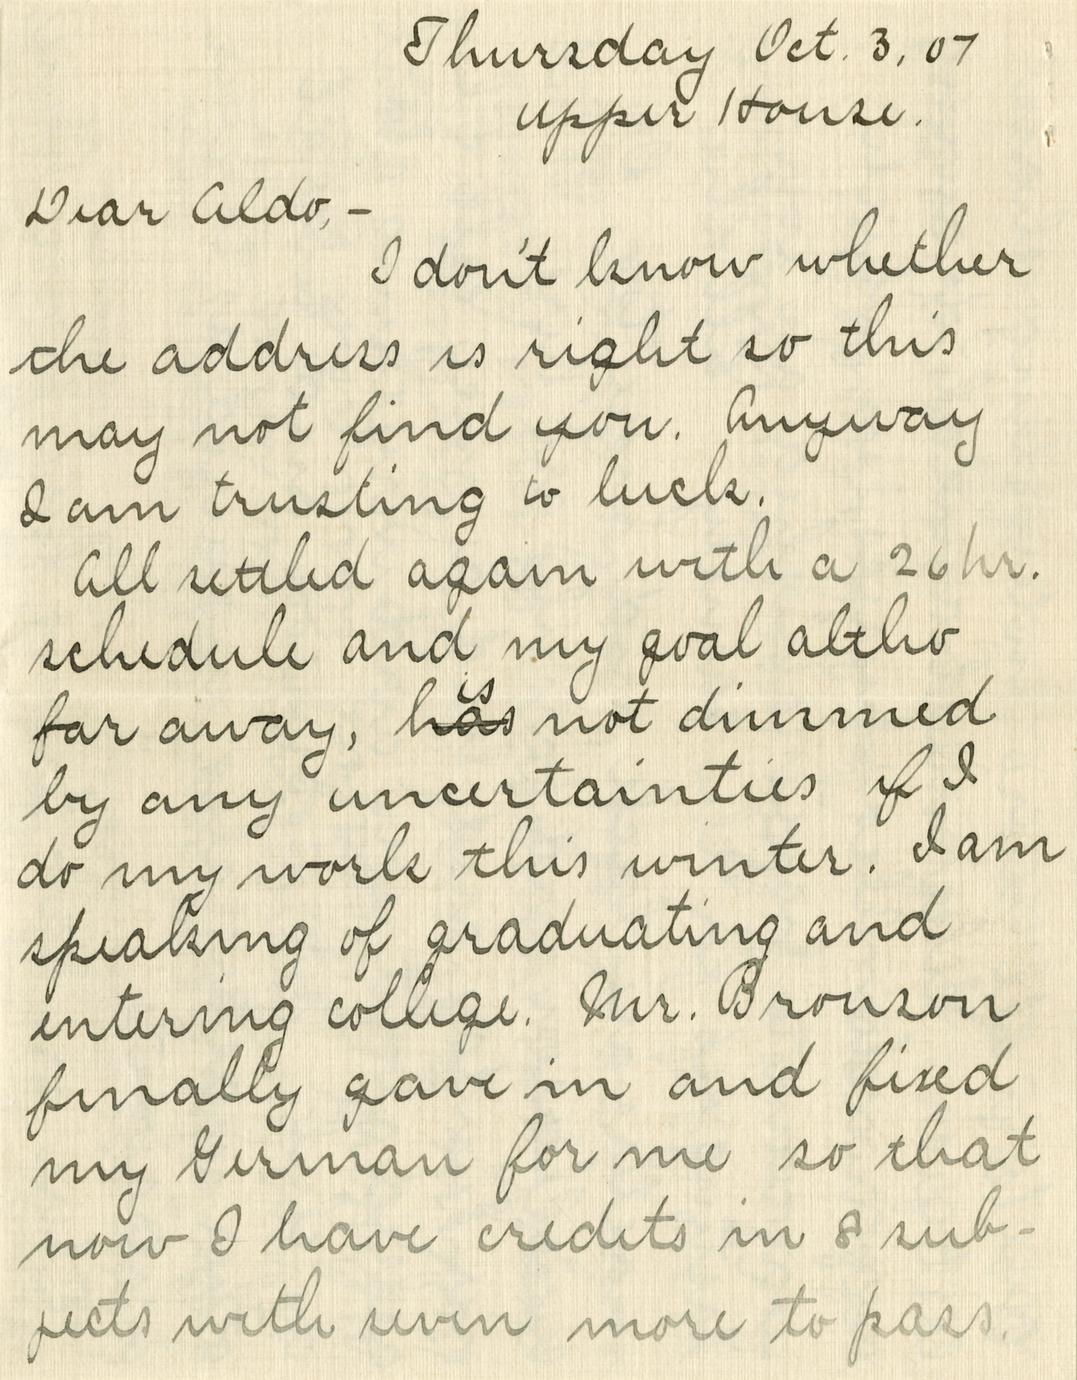 Thursday Oct. 3, 07
Upper House.
Dear Aldo,-
I don't know whether
the address is right so this
may not find you. Anyway
I am trusting to luck.
All settled again with a 26 hr.
schedule and my goal altho
is
far away, has not dimmed
by any uncertainties if I
do my work this winter. I am
speaking of graduating and
entering college. Mr. Bronson
finally gave in and fixed
my German for me so that
now I have credits in 8 sub-
jects with seven more to pass.